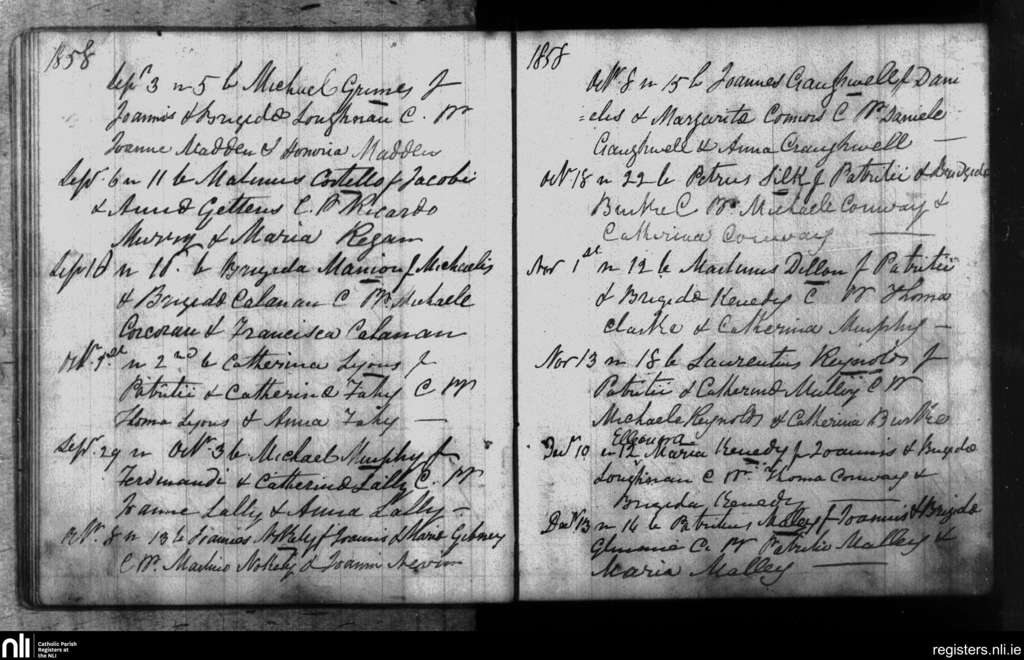 1858
Sepr 3 n 5 b Michael Grimes f
Joannis & Brigidæ Loughnan C. Pr
Joanne Madden & Honoria Madden
Sepr 6 n 11 b Martinus Costello f Jacobi
& Annæ Gettens C. Pr Ricardo
Murry & Maria Regan
Sepr 10 n b Brigida Manion f Michaelis
& Brigidæ Calanan C Pr Michaele
Corcoran & Francisca Calanan
Octr 1st n 2nd b Catherina Lyons f
Patritii & Catherinæ Fahy C Pr
Thoma Lyons & Anna Fahy —
Sepr 29 n Octr 3 b Michael Murphy f
Ferdinandi & Catherinæ Lally C. Pr
Joanne Lally & Anna Lally —
Octr 8 n 13 b f Joannis & Mariæ Gibney
C Pr Martino & Joanna
1858
Octr 8 n 15 b Joannes Craughwell f Dani
=elis & Margarita Connors C Pr Daniele
Craughwell & Anna Craughwell —
Octr 18 n 22 b Petrus Silk f Patritii & Brigidæ
Burke C Pr Michaele Conway &
Catherina Conway —
Nov 1st n 12 b Martinus Dillon f Patritii
& Brigidæ Kenedy C Pr Thoma
Clarke & Catherina Murphy —
Nov 13 n 18 b Laurentius Reynolds f
Patritii & Catherinæ Mulloy C Pr
Michaele Reynolds & Catherina Burke
Elleanora
Decr 10 n 12 Maria Kenedy f Joannis & Brigidæ
Loughnan C Pr Thoma Conway &
Brigida Kenedy —
Decr 13 n 14 b Patritius Malley f Joannis & Brigidæ
C. Pr Patritio Malley &
Maria Malley —
nli
Catholic Parish
Registers at
the NLI
registers.nli.ie